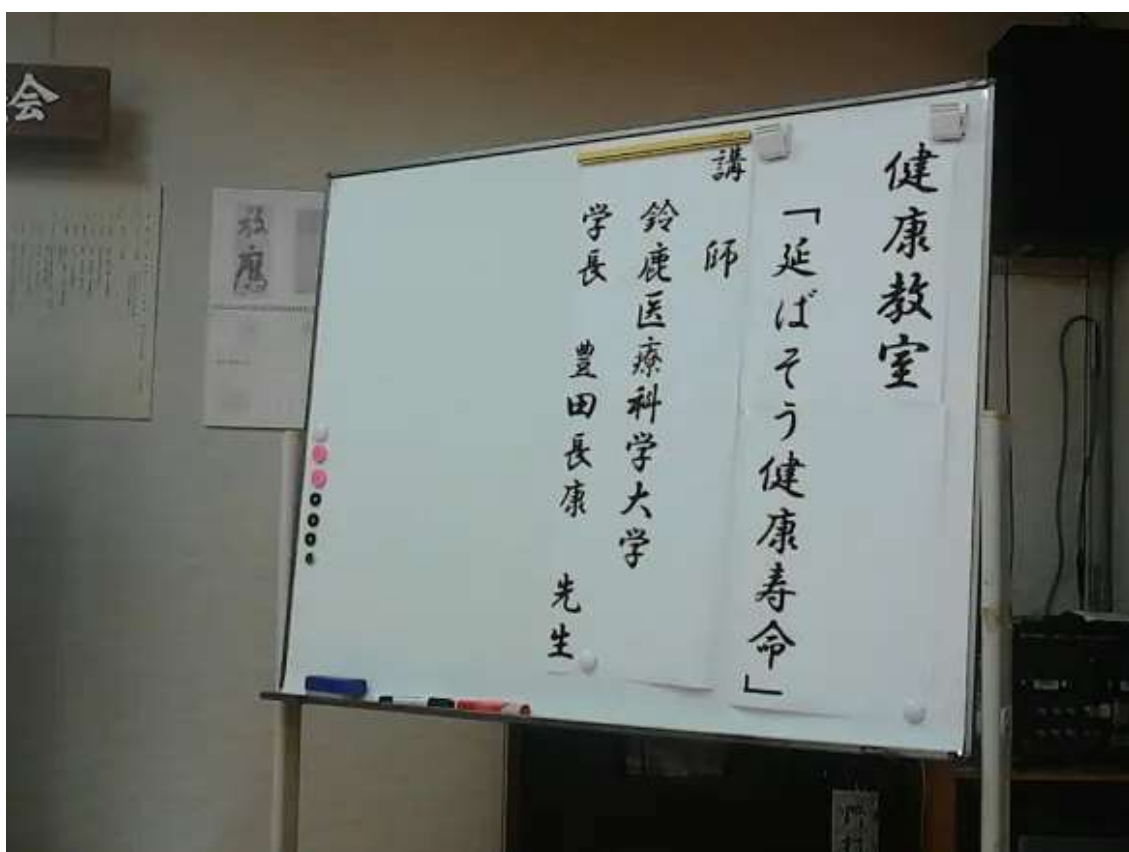 健康教室
「延ばそう健康寿命」
講師
鈴鹿医療科学大学
学長 豊田長康 先生
会